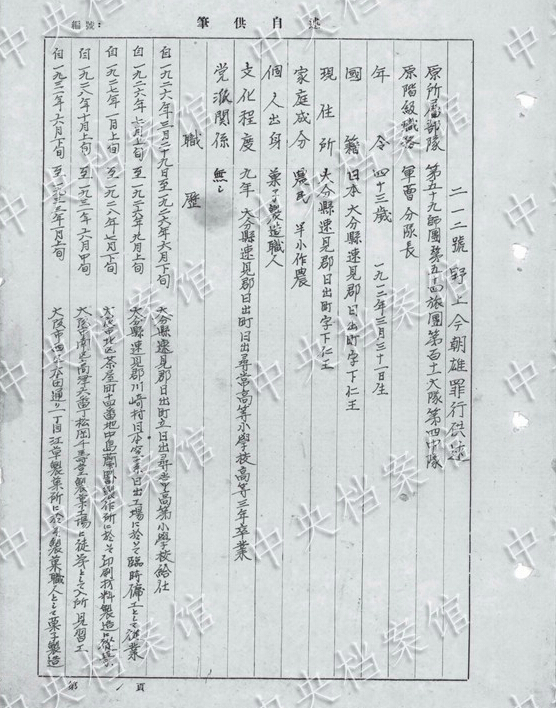 編號:
述自供筆
二一二號 野上今朝雄 罪行供述
原所屬部隊 第五十九師團第五十四旅團第百十一大隊第四中隊
原階級職務 軍曹 分隊長
年令 四十三歲 一九一二年三月三十一日生
國籍 日本 大分縣速見郡日出町字下仁王
現住所 大分縣速見郡日出町字下仁王
家庭成分 農民 半小作農
個人出身 菓子製造職人
文化程度 九年 大分縣速見郡日出町日出尋常高等小學校高等三年卒業
党派関係 無し
職歴
自一九二六年三月二十九日至一九二六年六月下旬 大分縣速見郡日出町立日出尋常高等小學校給仕
自一九二六年 月上旬至一九二六年九月上旬 大分縣速見郡川崎村日本 日出工場に於いて臨時傭工として從業
自一九二七年一月上旬至一九二八年 月下旬 大阪市北区茶屋町十四番地中島 製作所に於いて印刷材料製造に從業
自一九二八年十月上旬至一九三一年六月中旬 大阪市南区高津六番丁松岡千壽堂製菓工場に徒弟として入所見習工
自一九三一年六月下旬至一九三三年一月上旬 大阪市西区本田通り一丁目江草製菓所に於て製菓職人として菓子製造
第 1 頁
中央档案馆